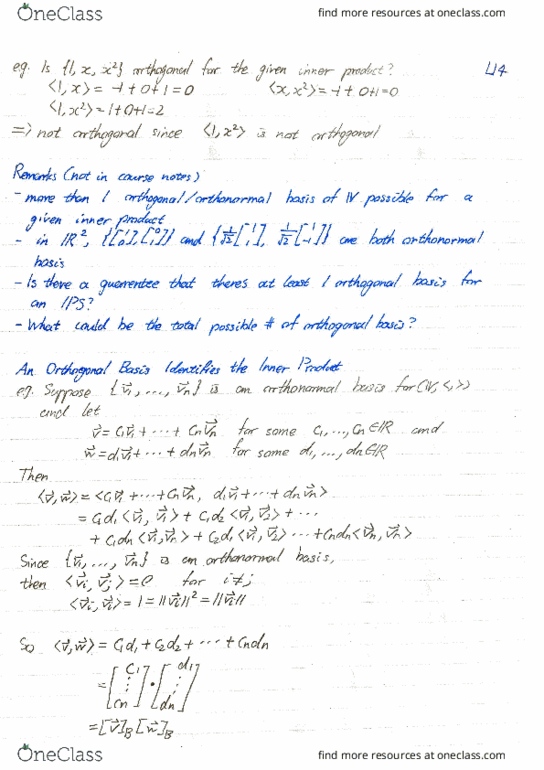 OneClass
find more resources at oneclass.com
eg. Is {1, x, x²} orthogonal for the given inner product? L14
⟨1, x⟩ = -1 + 0 + 1 = 0 ⟨x, x²⟩ = -1 + 0 + 1 = 0
⟨1, x²⟩ = 1 + 0 + 1 = 2
=> not orthogonal since ⟨1, x²⟩ is not orthogonal
Remarks (not in course notes)
- more than 1 orthogonal/orthonormal basis of V possible for a
given inner product
- in IR², {[1 0], [0 1]} and {1/√2 [1 1], 1/√2 [1 -1]} are both orthonormal
basis
- Is there a guarrentee that theres at least 1 orthogonal basis for
an IPS?
- What could be the total possible # of orthogonal basis?
An Orthogonal Basis Identifies the Inner Product
eg. Suppose {v⃗1, ..., v⃗n} is an orthonormal basis for (V, <,>)
and let
v⃗ = c1v⃗1 + ··· + cnv⃗n for some c1, ..., cn ∈ IR and
w⃗ = d1v⃗1 + ··· + dnv⃗n for some d1, ..., dn ∈ IR
Then
⟨v⃗, w⃗⟩ = ⟨c1v⃗1 + ··· + cnv⃗n, d1v⃗1 + ··· + dnv⃗n⟩
= c1d1⟨v⃗1, v⃗1⟩ + c1d2⟨v⃗1, v⃗2⟩ + ···
+ c1dn⟨v⃗1, v⃗n⟩ + c2d1⟨v⃗1, v⃗2⟩ ··· + cndn⟨v⃗n, v⃗n⟩
Since {v⃗1, ..., v⃗n} is an orthonormal basis,
then ⟨v⃗i, v⃗j⟩ = 0 for i ≠ j
⟨v⃗i, v⃗i⟩ = 1 = ||v⃗i||² = ||v⃗i||
So ⟨v⃗, w⃗⟩ = c1d1 + c2d2 + ··· + cndn
= [c1 ⋮ cn] · [d1 ⋮ dn]
= [v⃗]B [w⃗]B
OneClass
find more resources at oneclass.com